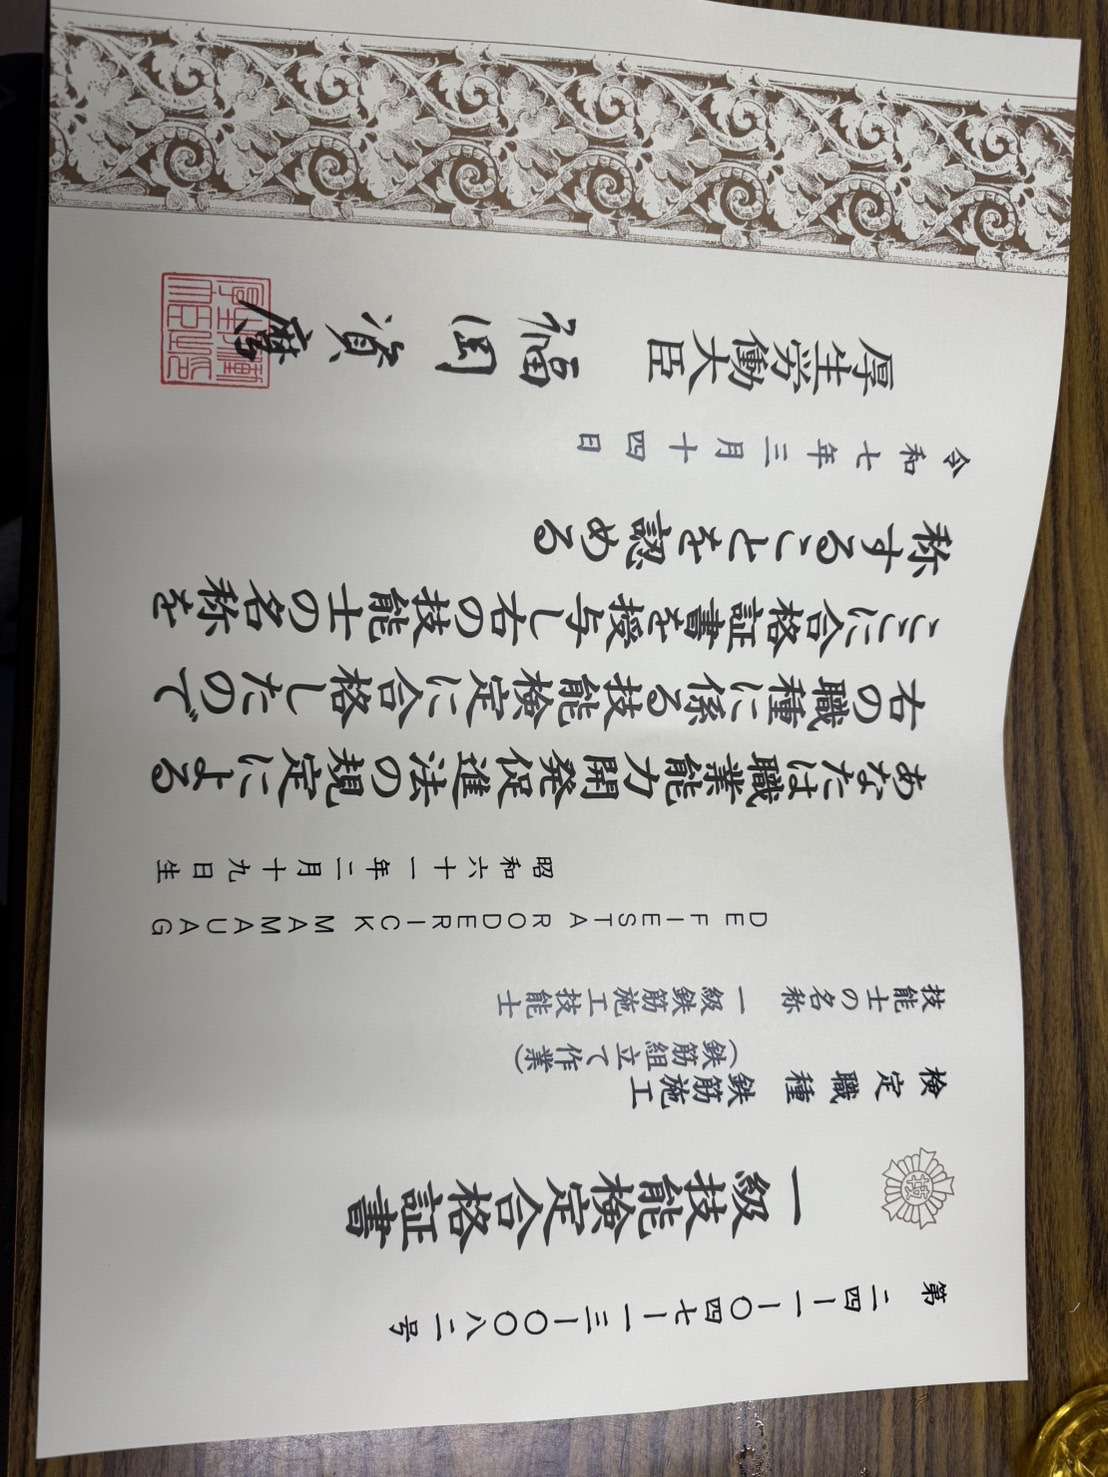 第二四ー一ー〇四七ー一三ー〇〇八二号
一級技能検定合格証書
検定職種 鉄筋施工
(鉄筋組立て作業)
技能士の名称 一級鉄筋施工技能士
DE FIESTA RODERICK MAMAUAG
昭和六十一年二月十九日生
あなたは職業能力開発促進法の規定による
右の職種に係る技能検定に合格したので
ここに合格証書を授与し右の技能士の名称を
称することを認める
令和七年三月十四日
厚生労働大臣 福岡資麿